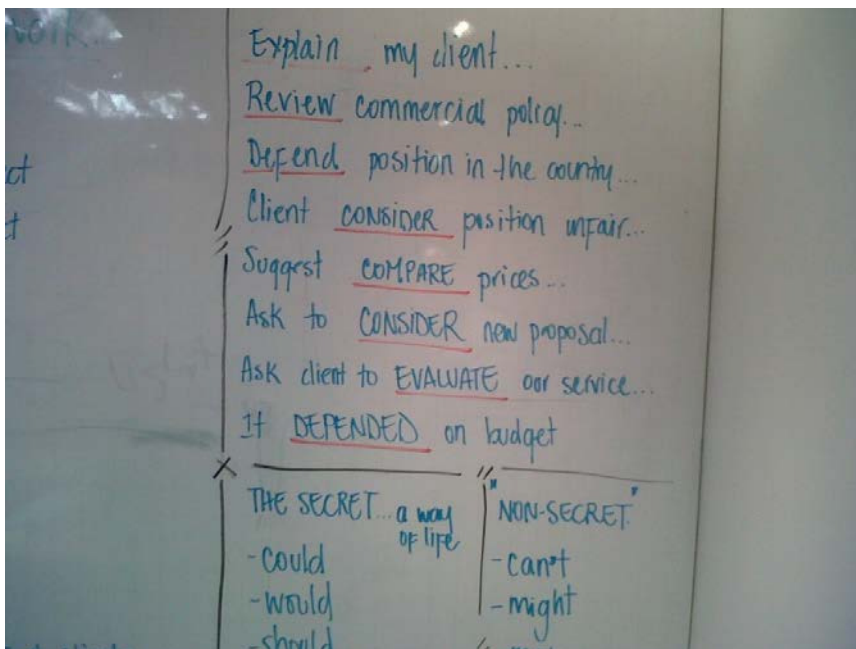 work...
ct
t
Explain my client...
Review commercial policy...
Defend position in the country...
Client CONSIDER position unfair...
Suggest COMPARE prices...
Ask to CONSIDER new proposal...
Ask client to EVALUATE our service...
It DEPENDED on budget
THE SECRET... a way
of life
- could
- would
- should
"NON-SECRET"
- can't
- might